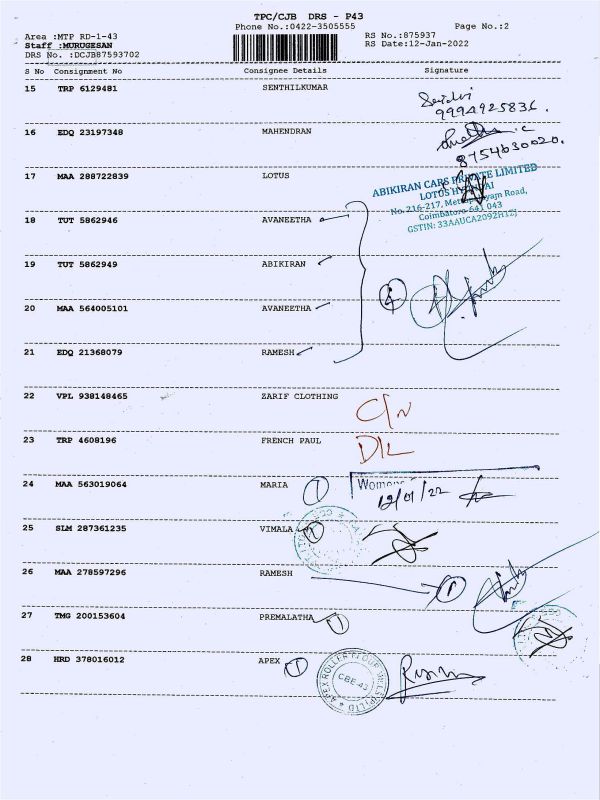 TPC/CJB DRS - P43
Phone No.:0422-3505555
Page No.:2
Area :MTP RD-1-43
RS No.:875937
Staff :MURUGESAN
RS Date:12-Jan-2022
DRS No. :DCJB87593702
S No Consignment No Consignee Details Signature
15 TRP 6129481 SENTHILKUMAR
9994925836.
16 EDQ 23197348 MAHENDRAN
8754630020.
17 MAA 288722839 LOTUS
ABIKIRAN CARS PRIVATE LIMITED
LOTUS
No. 216-217,
Road,
Coimbatore-641 043
GSTIN: 33AAUCA2092H1ZJ
18 TUT 5862946 AVANEETHA
19 TUT 5862949 ABIKIRAN
20 MAA 564005101 AVANEETHA
4
21 EDQ 21368079 RAMESH
22 VPL 938148465 ZARIF CLOTHING
C/N
23 TRP 4608196 FRENCH PAUL
D/L
24 MAA 563019064 MARIA 1
12/01/22
25 SLM 287361235 VIMALA 1
26 MAA 278597296 RAMESH 1
27 TMG 200153604 PREMALATHA 1
28 HRD 378016012 APEX 1
APEX ROLLER FLOUR MILLS (P) LTD
CBE-43